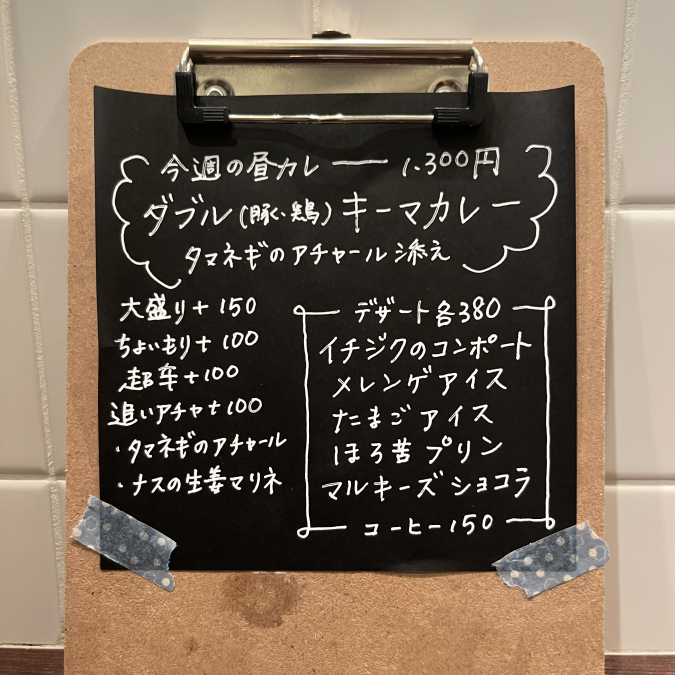 今週の昼カレー 1.300円
ダブル(豚、鶏)キーマカレー
タマネギのアチャール添え
大盛り+150
ちょいもり+100
超辛+100
追いアチャ+100
・タマネギのアチャール
・ナスの生姜マリネ
デザート各380
イチジクのコンポート
メレンゲアイス
たまごアイス
ほろ苦プリン
マルキーズショコラ
コーヒー150